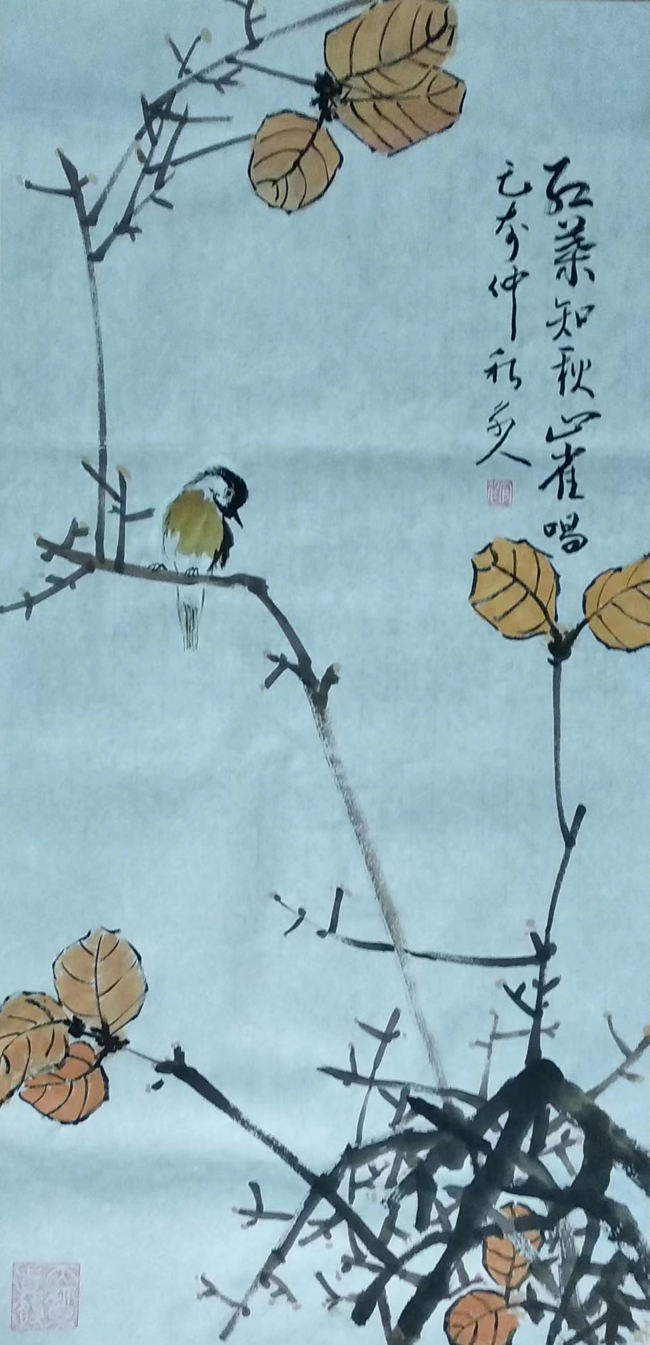 红葉知秋山雀唱
己亥仲秋人